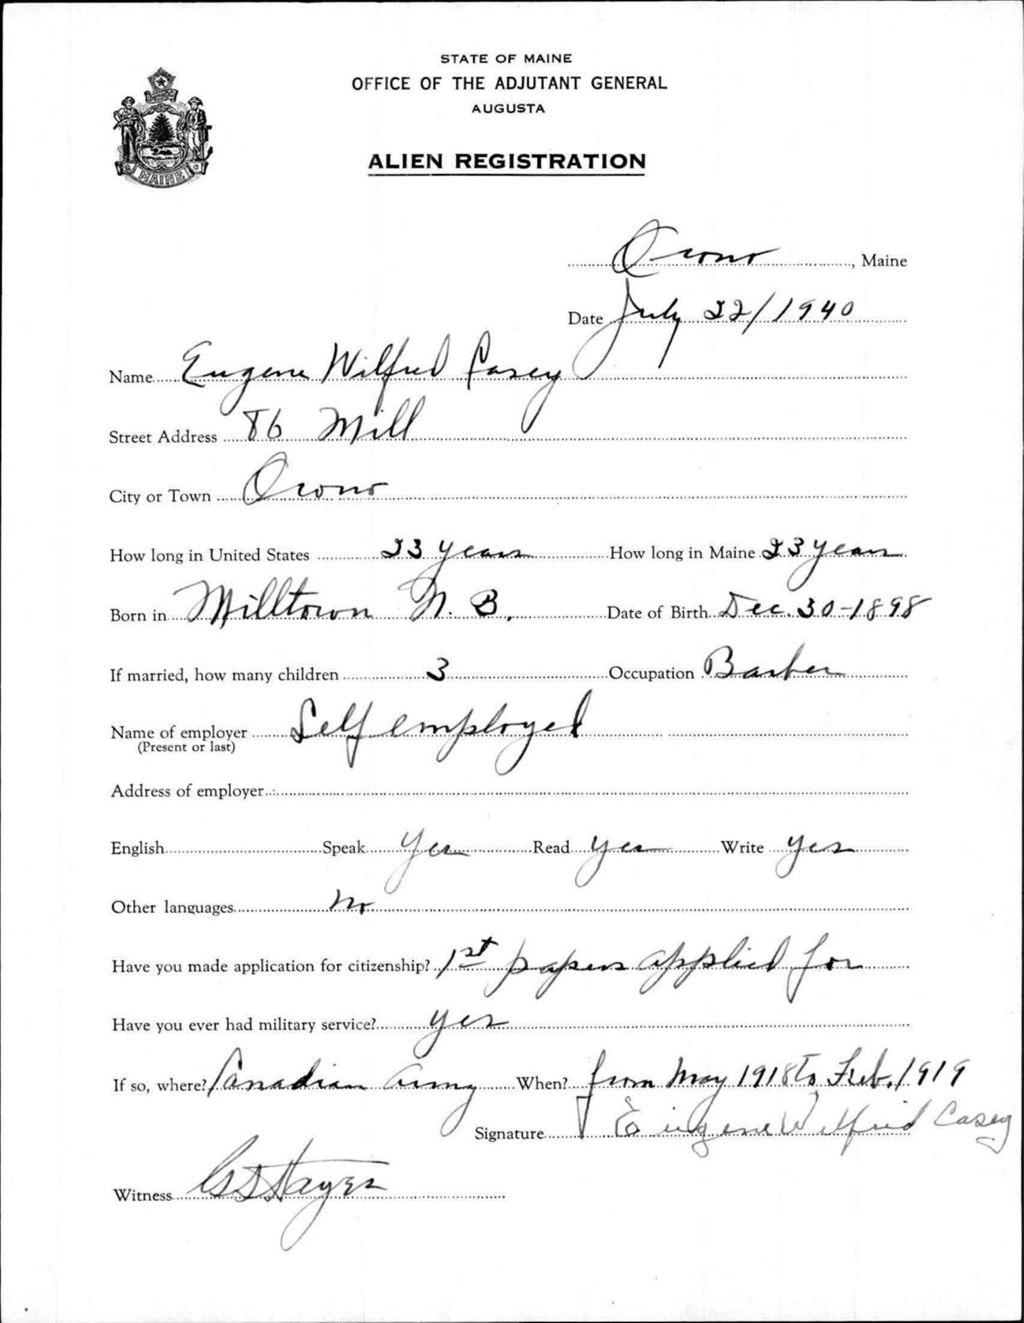 STATE OF MAINE
OFFICE OF THE ADJUTANT GENERAL
AUGUSTA
ALIEN REGISTRATION
MAINE
Orono, Maine
Date July 22/1940
Name Eugene Wilfred Casey
Street Address 86 Mill
City or Town Orono
How long in United States 23 years How long in Maine 23 years
Born in Milltown N. B. Date of Birth Dec. 30-1898
If married, how many children 3 Occupation Barber
Name of employer Self employed
(Present or last)
Address of employer
English Speak Yes Read Yes Write Yes
Other languages No
Have you made application for citizenship? 1st papers applied for
Have you ever had military service? yes
If so, where? Canadian Army When? from May 1918 to Feb. 1919
Signature Eugene Wilfrid Casey
Witness Hayes